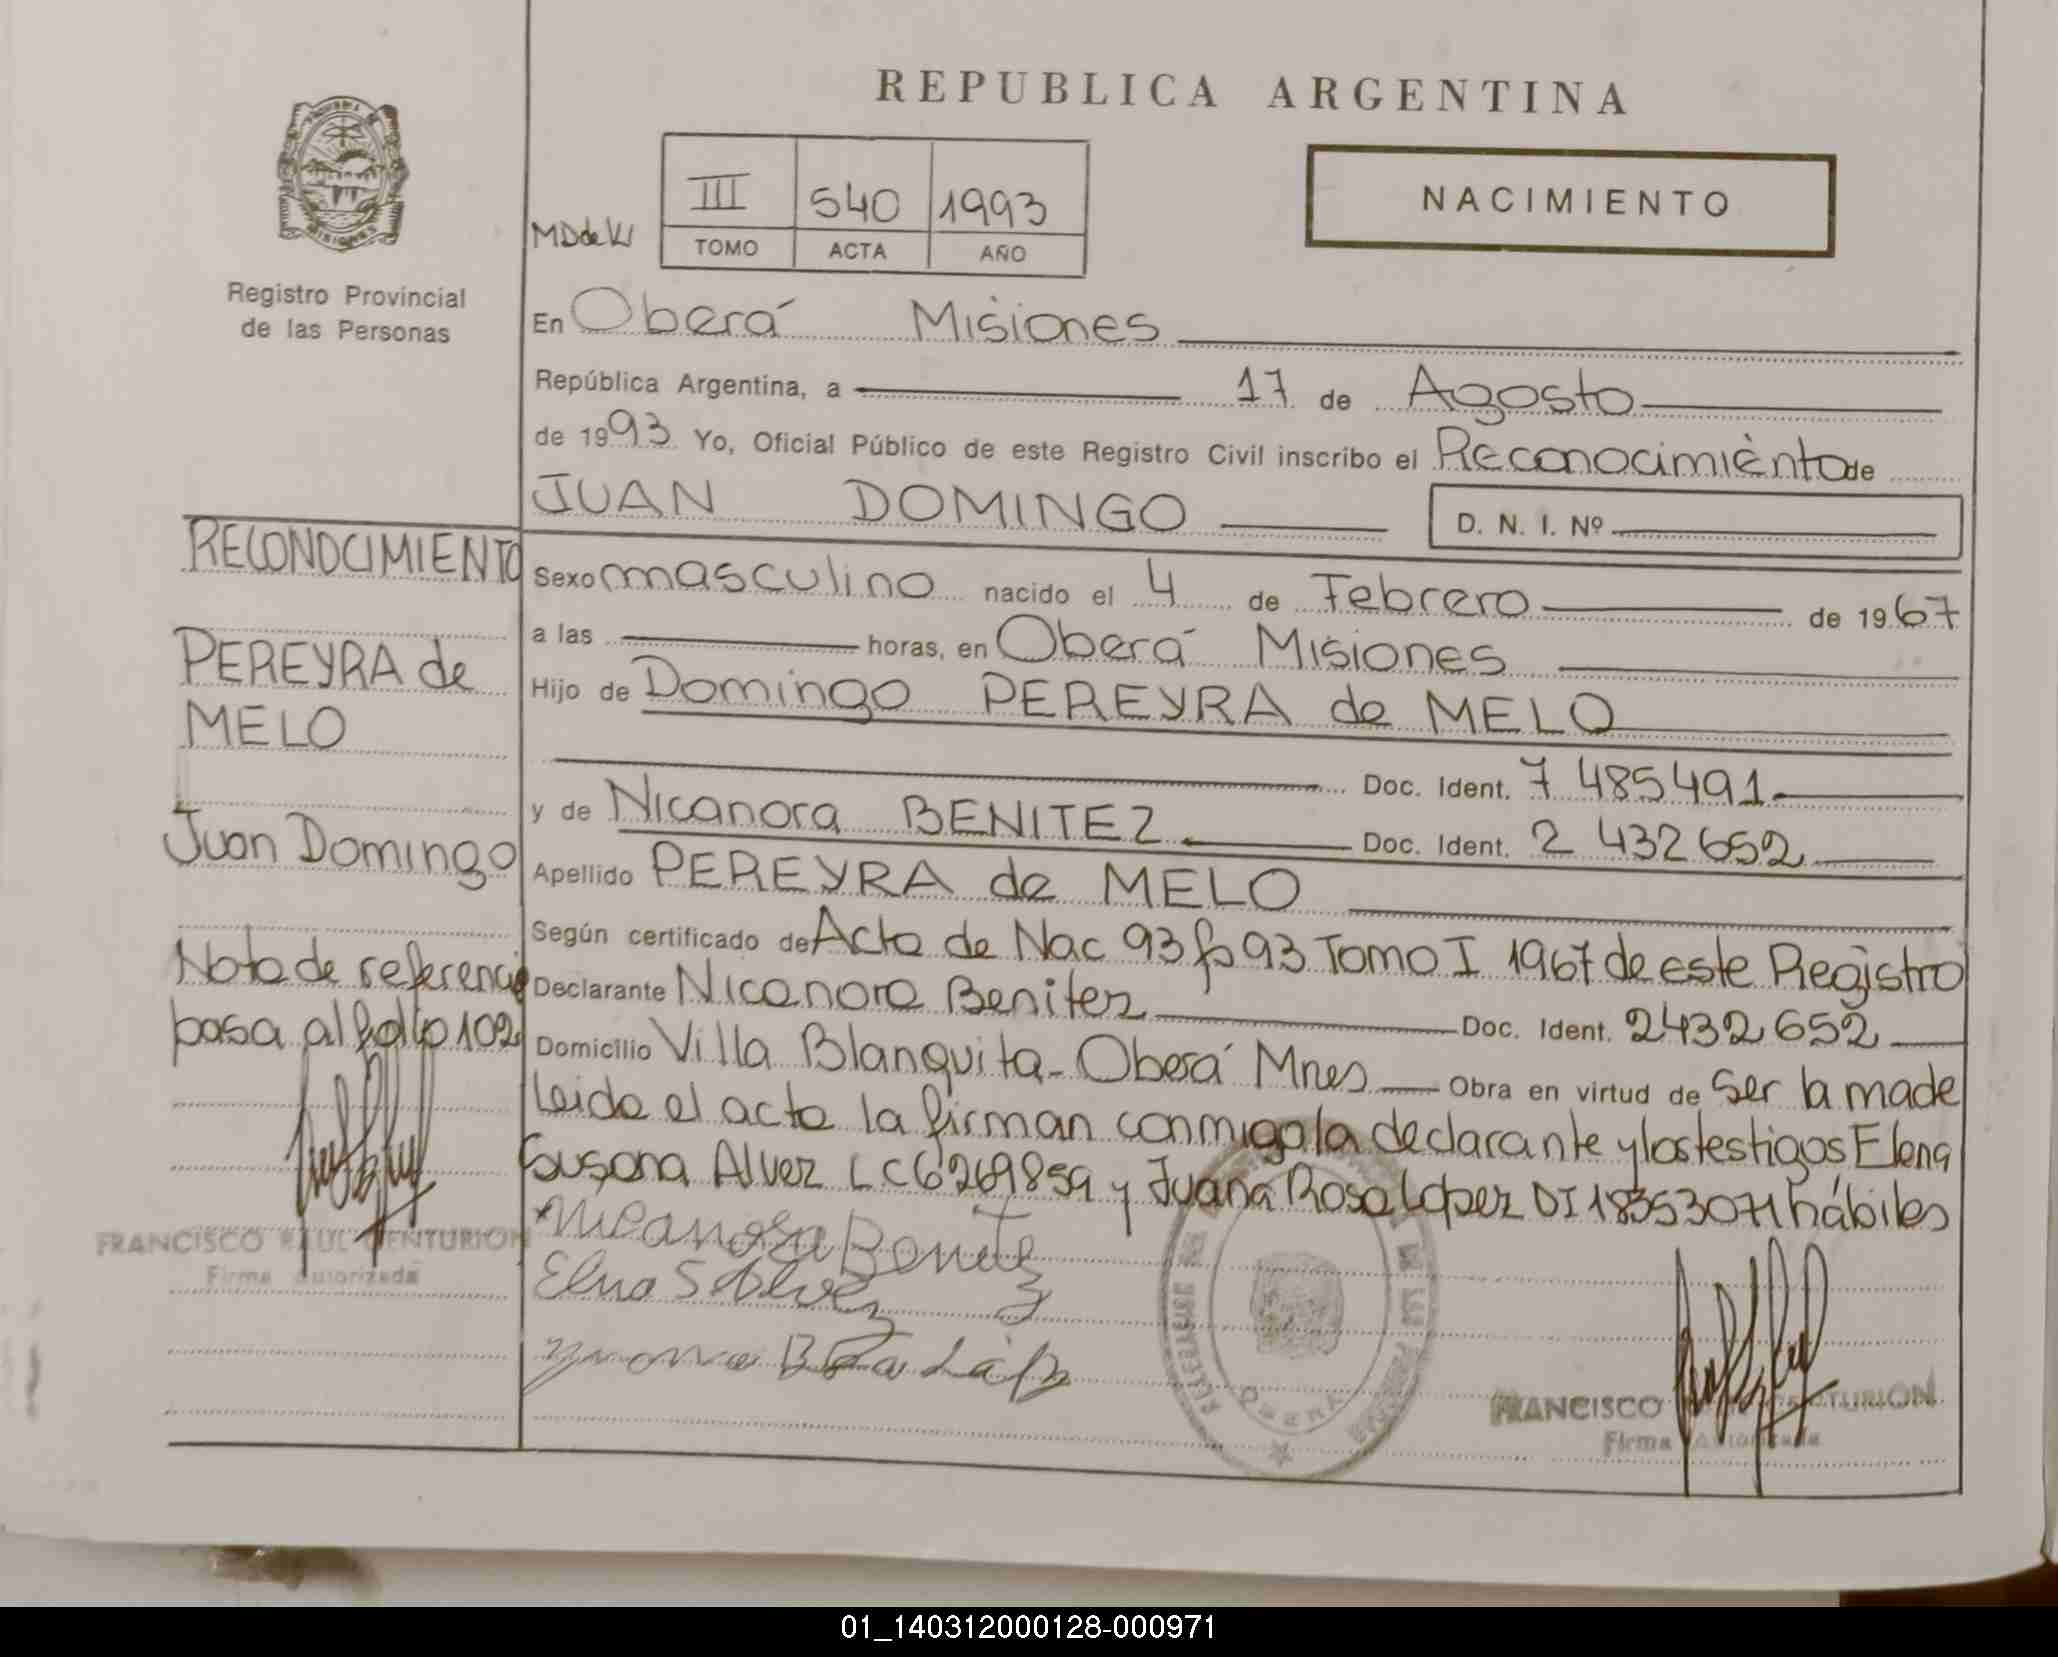 REPUBLICA ARGENTINA
NACIMIENTO
MISIONES
Registro Provincial
de las Personas
MDdeW
III 540 1993
TOMO ACTA AÑO
En Oberá Misiones
República Argentina, a 17 de Agosto
de 1993 Yo, Oficial Público de este Registro Civil inscribo el Reconocimiento de
JUAN DOMINGO D. N. I. Nº
Sexo masculino nacido el 4 de Febrero de 1967
a las horas, en Oberá Misiones
Hijo de Domingo PEREYRA de MELO
Doc. Ident. 7 485491
y de Nicanora BENITEZ Doc. Ident. 2 432652
Apellido PEREYRA de MELO
Según certificado de Acta de Nac 93 fo 93 Tomo I 1967 de este Registro
Declarante Nicanora Benitez Doc. Ident. 2432652
Domicilio Villa Blanquita - Oberá Mnes Obra en virtud de Ser la made
Leida el acta la firman conmigo la declarante y los testigos Elena
Susana Alvez LC 6269859 y Juana Rosa Lopez DI 18353071 hábiles
Nicanora Benitez
Elena S Alvez
RECONOCIMIENTO
PEREYRA de
MELO
Juan Domingo
Nota de referencia
pasa al folio 102
FRANCISCO RAUL CENTURION
Firma Autorizada
OBERA
FRANCISCO CENTURION
Firma Autorizada
01_140312000128-000971